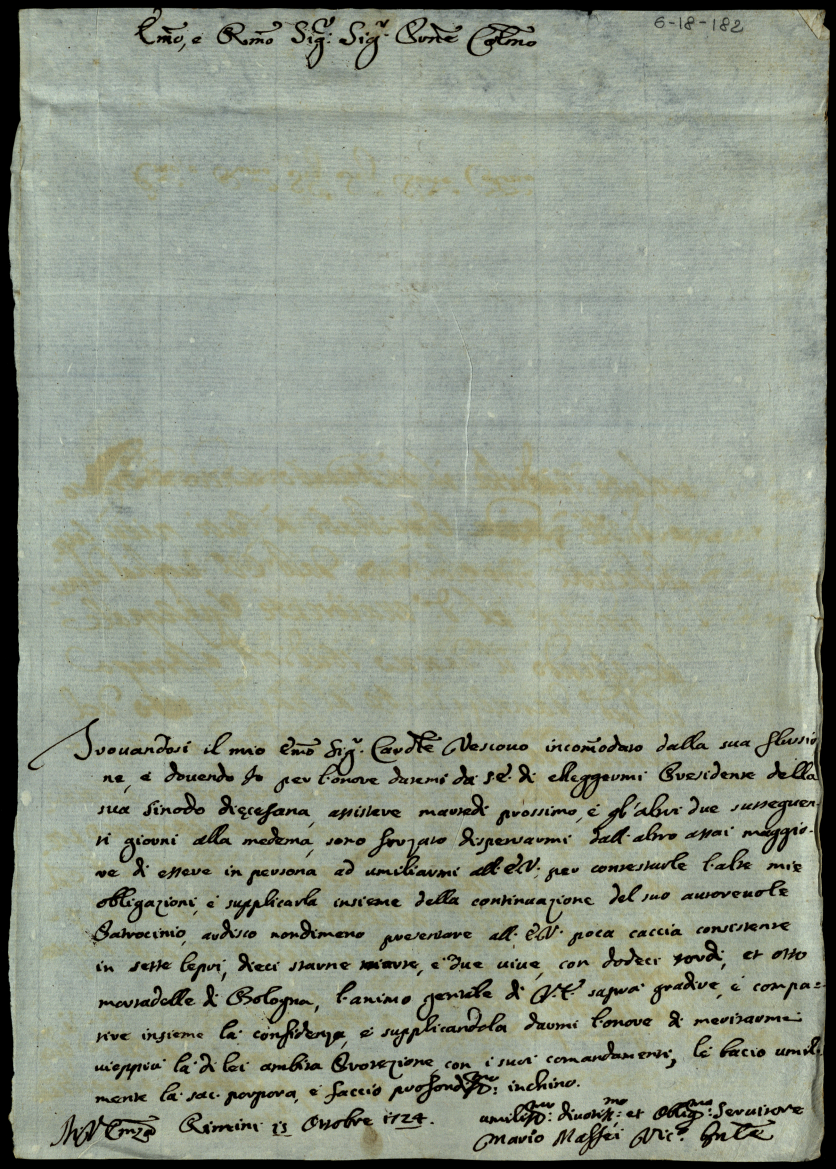 6-18-182
Emo, e Rmo Sig.r Sig.r Prone Colmo
Trovandosi il mio Emo Sig.r Cardle Vescovo incomodato dalla sua flussio
ne, e dovendo Io per l'onore datemi da S.E. di elleggermi Presidente della
sua Sinodo diecesana, assistere martedi prossimo, e gl'altri due sussequen
ti giorni alla medema, sono forzato dispensarmi dall'altro assai maggio-
re di essere in persona ad umiliarmi all'E.V. per contestarle l'alte mie
obligazioni, e supplicarla insieme della continuazione del suo autorevole
Patrocinio, ardisco nondimeno presentare all'E.V. poca caccia consistente
in sette lepri, dieci starne morte, e due vive, con dodeci tordi, et otto
mortadelle di Bologna, l'animo gentile di V.E. saprà gradire, e compa=
tire insieme la confidenza, e supplicandola darmi l'onore di meritarmi
vieppiù la di lei ambita Protezione con i suoi comandamenti, le bacio umil-
mente la sac. porpora, e faccio profondissmo inchino.
Di V. Emza Rimini 13 Ottobre 1724.
umilissmo: divotissmo: et Obligmo: Servitore
Mario Maffei Vic.o Gnle